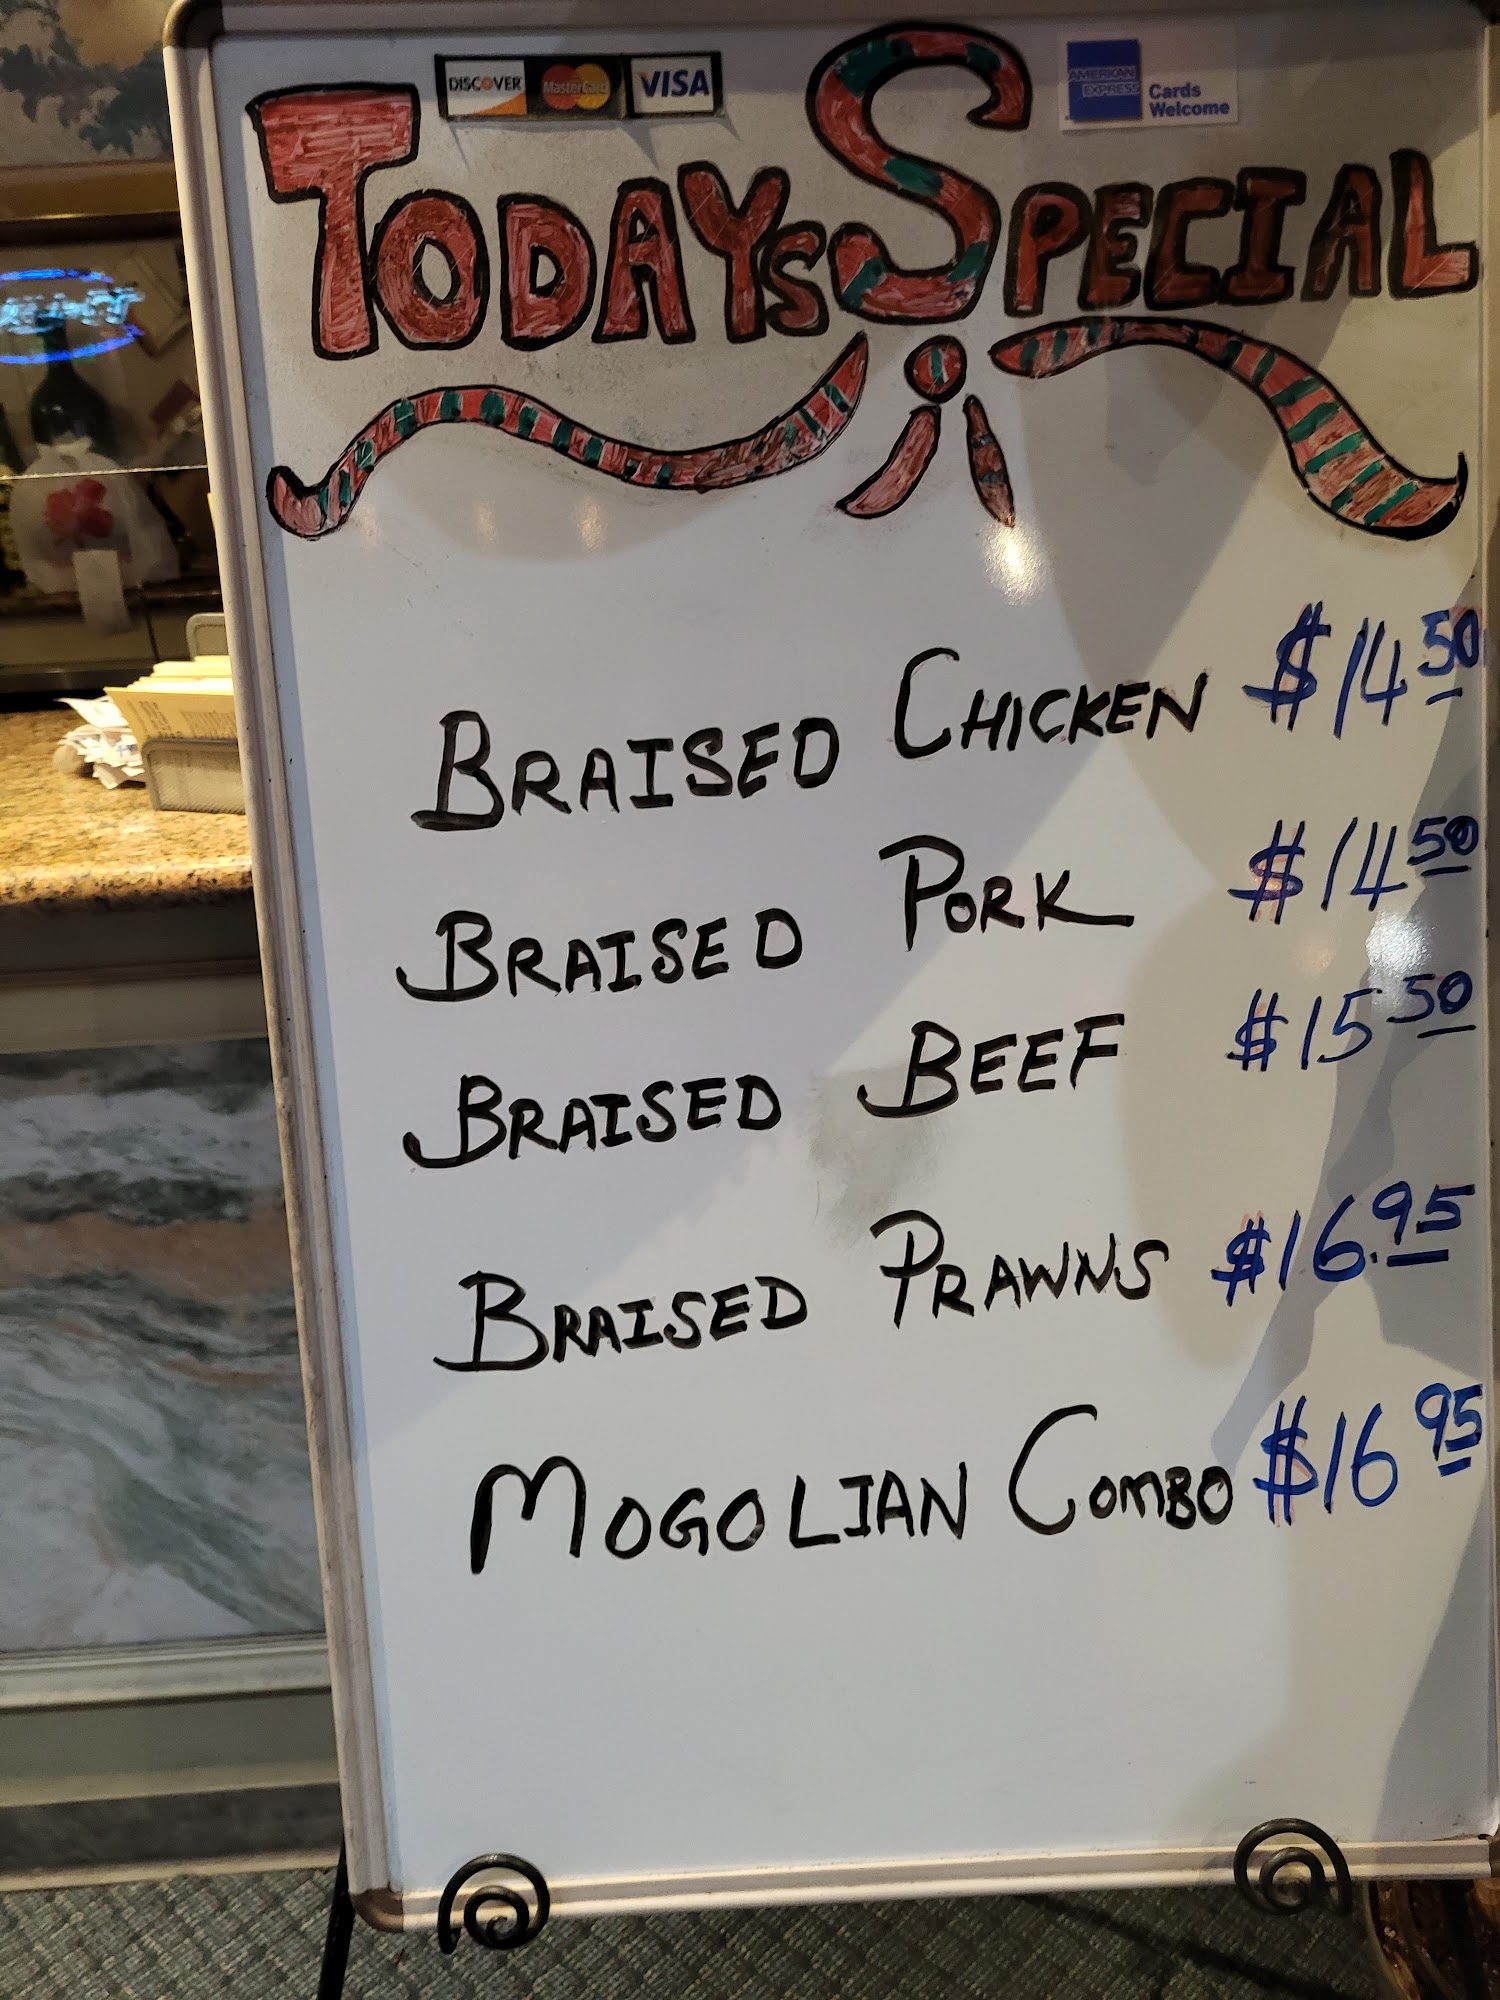 DISCOVER MasterCard VISA
AMERICAN EXPRESS Cards Welcome
TODAYS SPECIAL
BRAISED CHICKEN $14.50
BRAISED PORK $14 50
BRAISED BEEF $15 50
BRAISED PRAWNS $16.95
MOGOLIAN COMBO $16 95